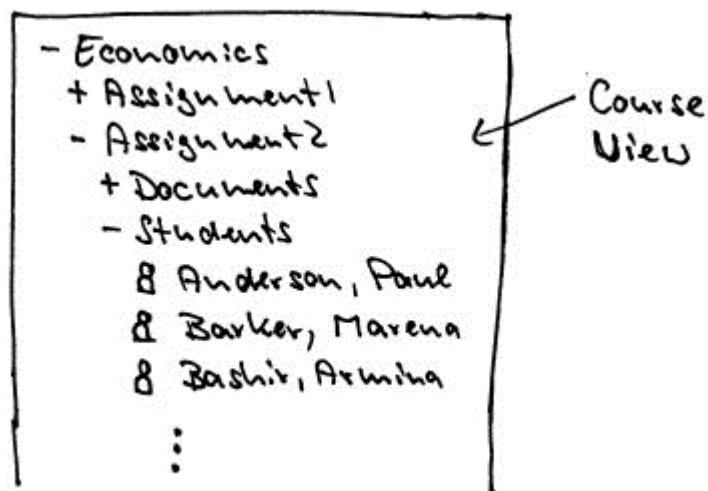 - Economics
+ Assignment1
- Assignment2
+ Documents
- Students
Anderson, Paul
Barker, Marena
Bashir, Armina
⋮
Course
View